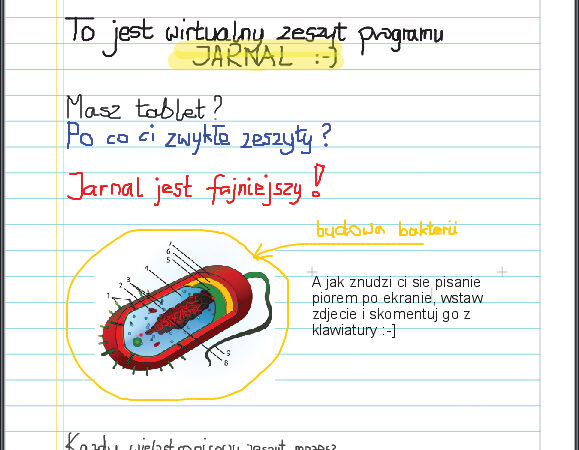 To jest wirtualny zeszyt programu
JARNAL :-)
Masz tablet?
Po co ci zwykłe zeszyty?
Jarnal jest fajniejszy!
budowa bakterii
7
6
5
4
3
2
1
A jak znudzi ci sie pisanie
piorem po ekranie, wstaw
zdjecie i skomentuj go z
klawiatury :-]
9
8
Kazdy zeszyt mozesz